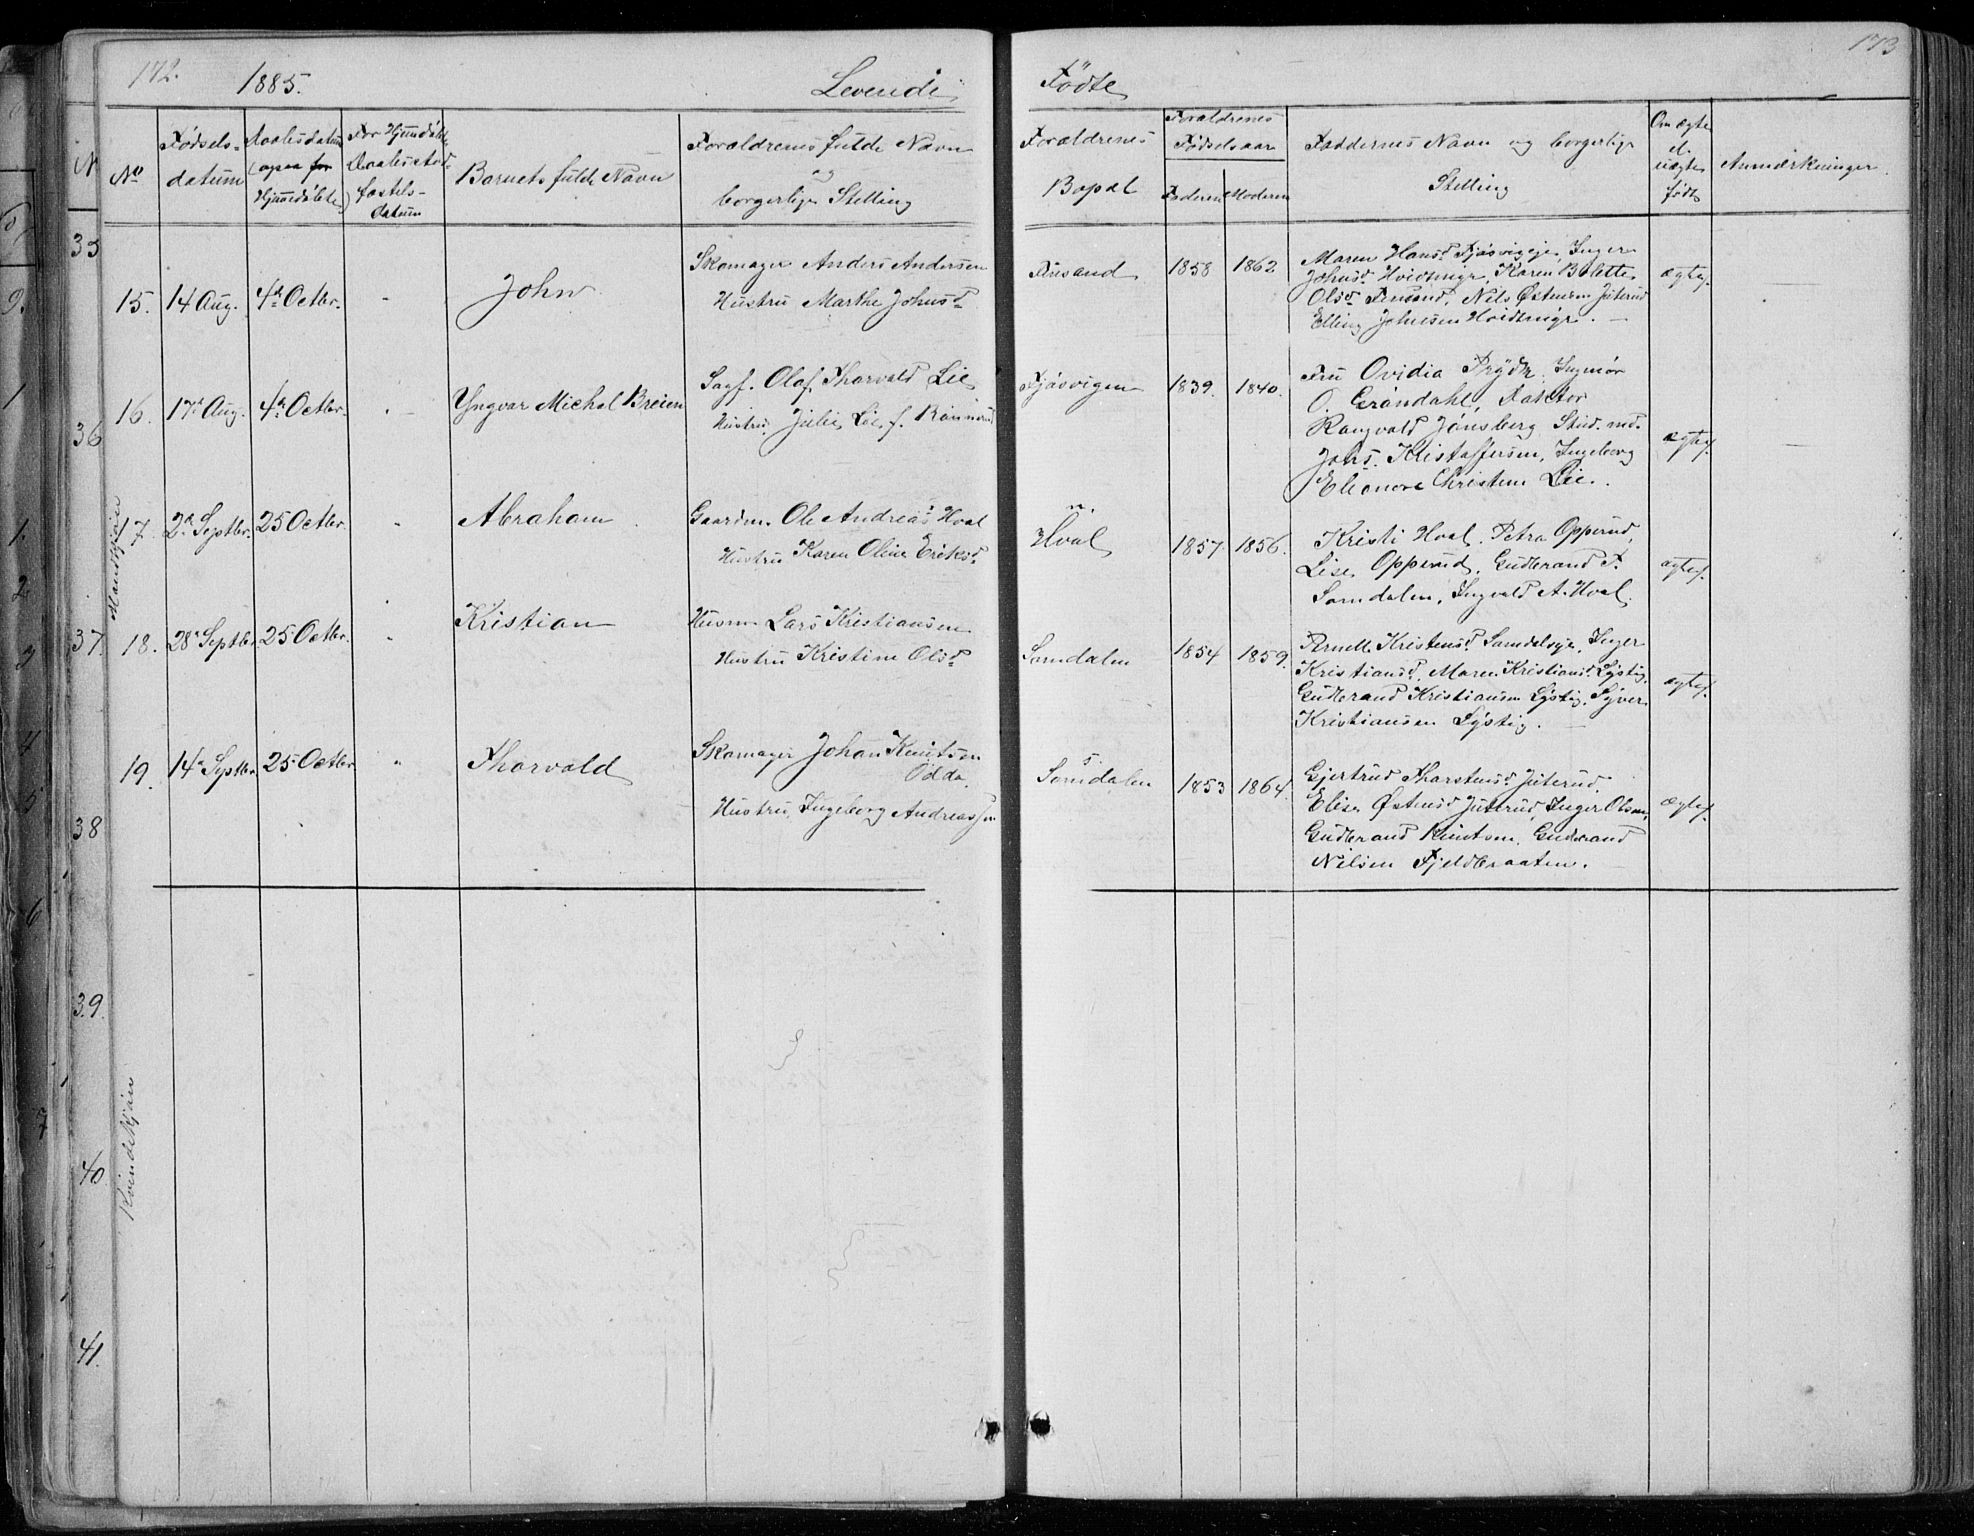 172.
1885.
Levende
Fødte
173
No
Fødsels-
datum
Daabsdatum
(ogsaa for
Hjemmedøbte)
For Hjemmedøbte
Daabsstad-
fæstels-
datum
Barnets fulde Navn
Forældrenes fulde Navn
og
borgerlige Stilling
Forældrenes
Bopæl
Forældrenes
Fødselsaar
Faderen
Moderen
Faddernes Navn og borgerlige
Stilling
Om ægte
el.
uægte
født
Anmærkninger.
Mandkjøn
15.
14 Aug.
4de Octbr.
John
Skomager Anders Andersen
Hustru Marthe Johnsd.
Finsand
1858
1862
Maren Hansd. Fjøsvigeje, Inger
Johnsd. Hvidmyr, Karen Bolette
Olsd. Finsand, Nils Østensen Juterud
Elling Johnsen Hvidmyr.
ægtef.
16.
17de Aug.
4de Octbr.
Yngvar Michel Breien
Sagf. Olaf Thorvald Lie
Hustru Julie Lie f.
Fjøsvigen
1839.
1840.
Fru Ovidia Prydz, Ingeniør
O. Grøndahl, Doktor
Rangvald Jønsberg Stud. med.
Johs. Kristoffersen, Ingeborg
Eleonore Christine Lie.
ægtef.
17.
2de Septbr.
25 Octbr.
Abraham
Gaardm. Ole Andreas Hval
Hustru Karen Oline Eriksd.
n.
Hval
1857.
1856.
Kristi Hval. Petra Opperud,
Lise Opperud, Gudbrand P.
Somdalen, Ingvald A. Hval.
ægtef.
18.
28de Septbr.
25 Octbr.
Kristian
Husm. Lars Kristiansen
Hustru Kristine Olsd.
Somdalen
1854
1859.
Pernille Kristensd. Somdaleje, Inger
Kristiansd., Maren Kristiansd. Lystig,
Gudbrand Kristiansen Lystig, Syver
Kristiansen Lystig.
ægtef.
19.
14de Septbr.
25 Octbr.
Thorvald
Skomager Johan Knutsen
Odda
Hustru, Ingeborg Andreassen
s.
Somdalen
1853
1864.
Gjertrud Tharstensd. Juterud,
Elise Østensd. Juterud, Inger Olsen,
Gudbrand Knutsen, Gudbrand
Nilsen Fjeldbraaten.
ægtef.
Kvindekjøn
35
36
37.
38
39.
40
41.